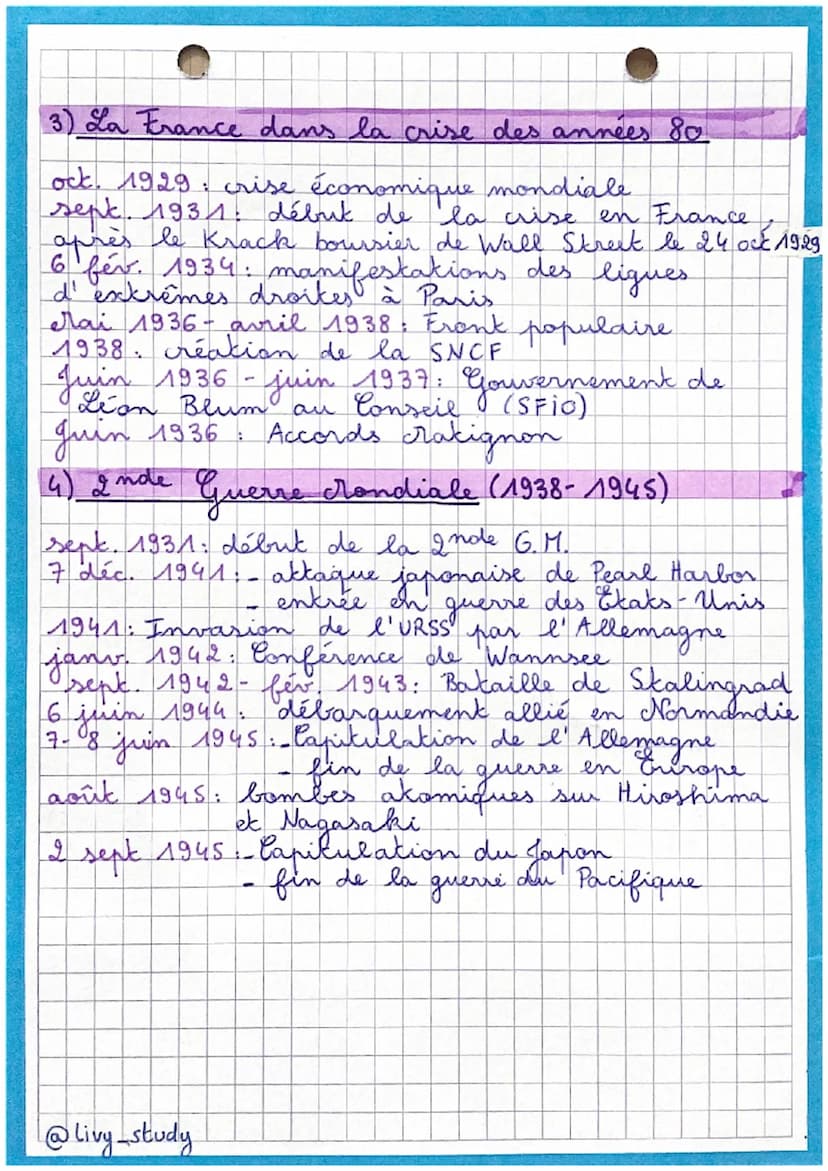 3) La France dans la crise des années 80
oct. 1929 : crise économique mondiale
sept. 1931 : début de la crise en France,
après le Krack boursier de Wall Street le 24 oct 1929
6 fév. 1934 : manifestations des ligues
d'extrêmes droites à Paris
Mai 1936 - avril 1938 : Front populaire
1938 : création de la SNCF
Juin 1936 - juin 1937 : Gouvernement de
Léon Blum au Conseil (SFiO)
Juin 1936 : Accords Matignon
4) 2nde Guerre Mondiale (1938-1945)
sept. 1931 : début de la 2nde G.M.
7 déc. 1941 : - attaque japonaise de Pearl Harbor
- entrée en guerre des Etats-Unis
1941 : Invasion de l'URSS par l'Allemagne
janv. 1942 : Conférence de Wannsee
sept. 1942 - fév. 1943 : Bataille de Stalingrad
6 juin 1944 : débarquement allié en Normandie
7-8 juin 1945 : - Capitulation de l'Allemagne
- fin de la guerre en Europe
août 1945 : bombes atomiques sur Hiroshima
et Nagasaki
2 sept 1945 : - Capitulation du Japon
- fin de la guerre du Pacifique
@livy_study